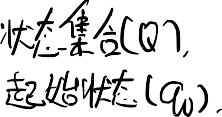 状态集合(Q),
起始状态(q0).